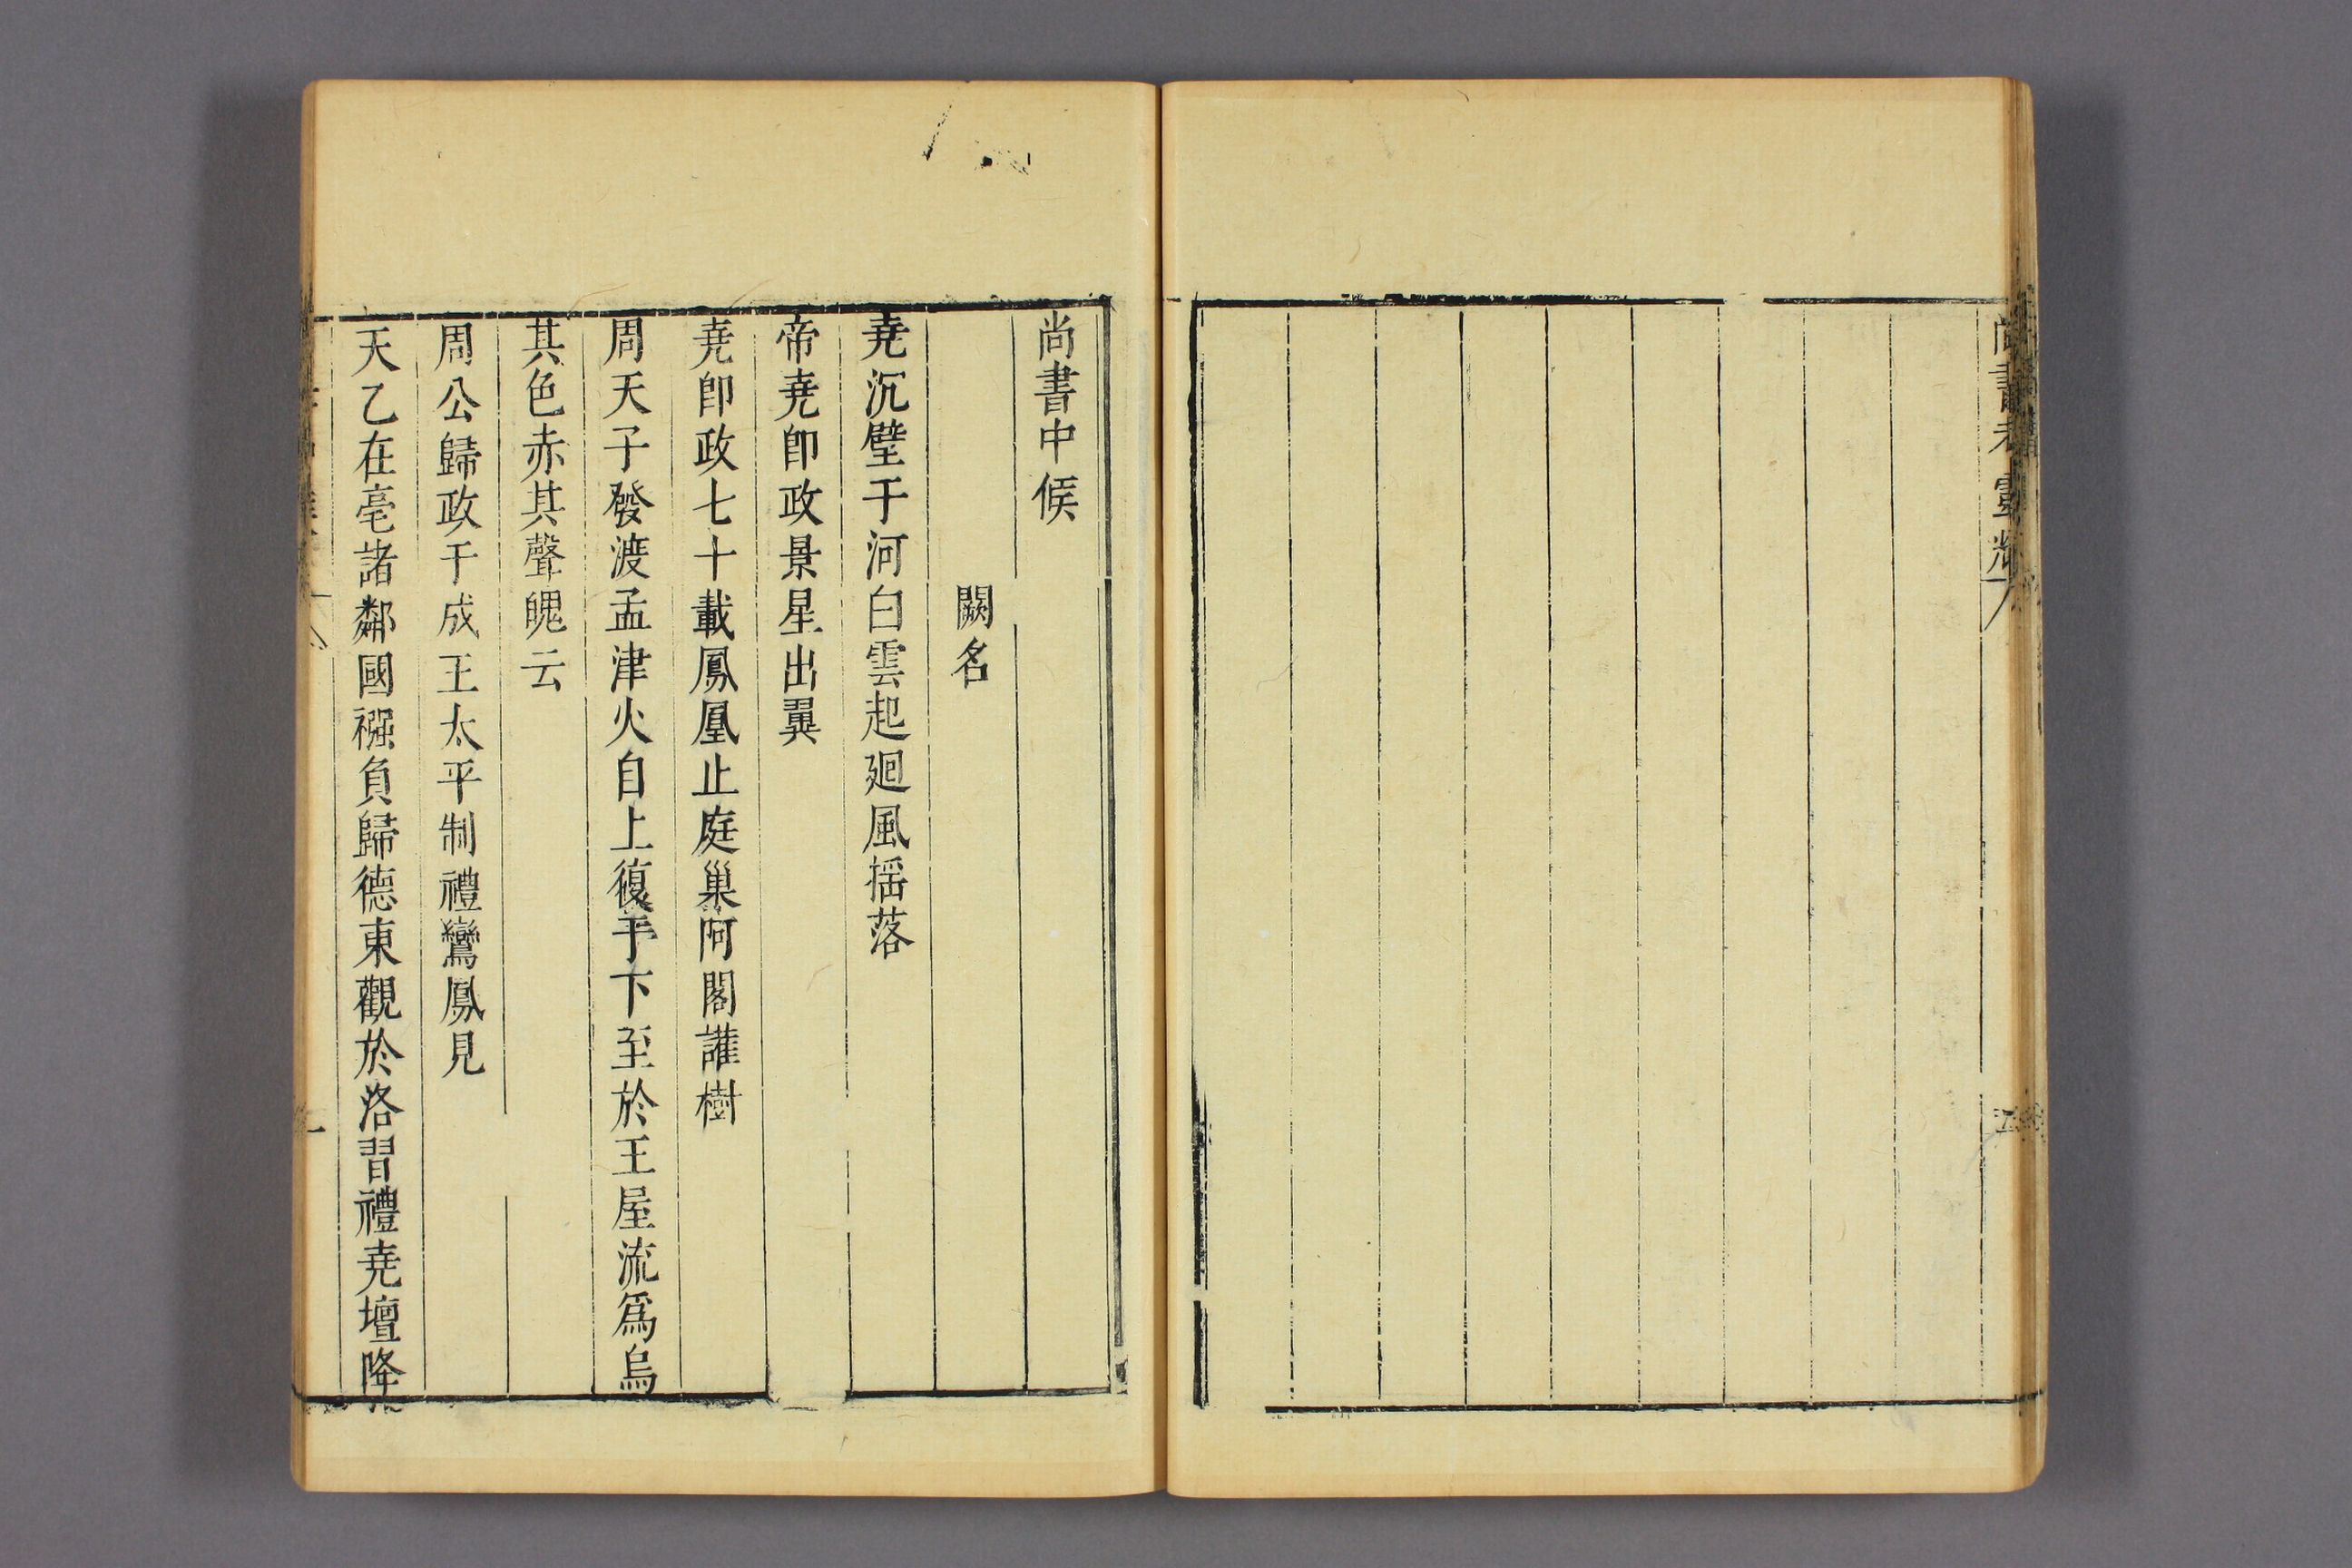 尚書考靈
尚書中候
闕名
堯沉璧于河白雲起廻風揺落
帝堯卽政景星出翼
堯卽政七十載鳳凰止庭巢阿閣讙樹
周天子發渡孟津火自上復于下至於王屋流爲烏
其色赤其聲魄云
周公歸政于成王太平制禮鸞鳳見
天乙在亳諸鄰國襁負歸德東觀於洛習禮堯壇降